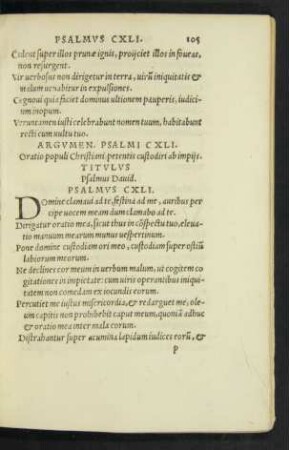 PSALMVS CXLI. 105
Cadent super illos prunæ ignis, proijciet illos in foueas,
non resurgent.
Vir uerbosus non dirigetur in terra, uirũ iniquitatis &
malum uenabitur in expulsiones.
Cognoui quia faciet dominus ultionem pauperis, iudici
um inopum.
Veruntamen iusti celebrabunt nomen tuum, habitabunt
recti cum uultu tuo.
ARGVMEN. PSALMI CXLI.
Oratio populi Christiani petentis custodiri ab impijs.
TITVLVS
Psalmus Dauid.
PSALMVS CXLI.
Domine clamaui ad te, festina ad me, auribus per
cipe uocem meam dum clamabo ad te.
Dirigatur oratio mea, sicut thus in cõspectu tuo, eleua
tio manuum mearum munus uespertinum.
Pone domine custodiam ori meo, custodiam super ostiũ
labiorum meorum.
Ne declines cor meum in uerbum malum, ut cogitem co
gitationes in impietate: cum uiris operantibus iniqui
tatem non comedam ex iocundis eorum.
Percutiet me iustus misericordia, & redarguet me, ole
um capitis non prohibebit caput meum, quoniã adhuc
& oratio mea inter mala eorum.
Distrabantur super acumina lapidum iudices eorũ, &
P